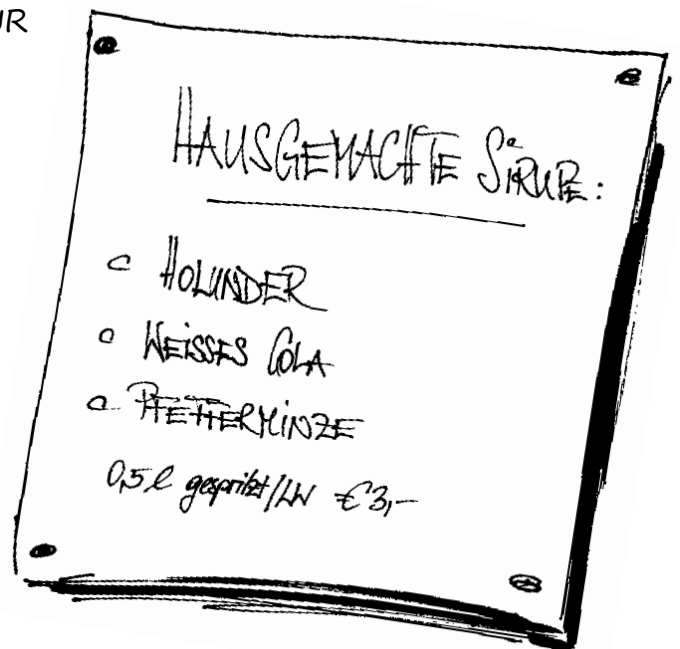 UR
HAUSGEMACHTE SIRUPE:
HOLUNDER
WEISSES COLA
PFEFFERMINZE
0,5 l gespritzt/LW €3,-